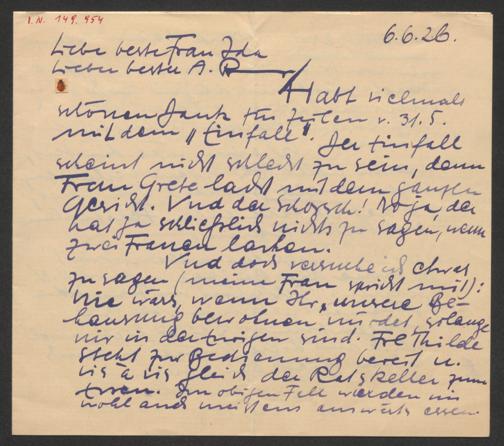 I.N. 149.954
6.6.26.
Liebe beste Frau Ida
Lieber bester A. R
Habt vielmals
schönen Dank für Zeilen v. 31.5.
mit dem „Einfall". Der Einfall
scheint nicht schlecht zu sein, denn
Frau Grete lacht mit dem ganzen
Gesicht. Und der Schorsch! No ja, der
hat ja schliesslich nichts zu sagen, wenn
zwei Frauen lachen.
Und doch versuche ich etwas
zu sagen (meine Frau spricht mit):
Wie wärs, wenn Ihr, unsere Be-
hausung bewohnen würdet, solange
wir in dortigen sind. Frl Thilde
steht zur Bedienung bereit u.
vis à vis gleich der Ratskeller zum
Im obigen Fall werden wir
wohl auch meistens auswärts essen.